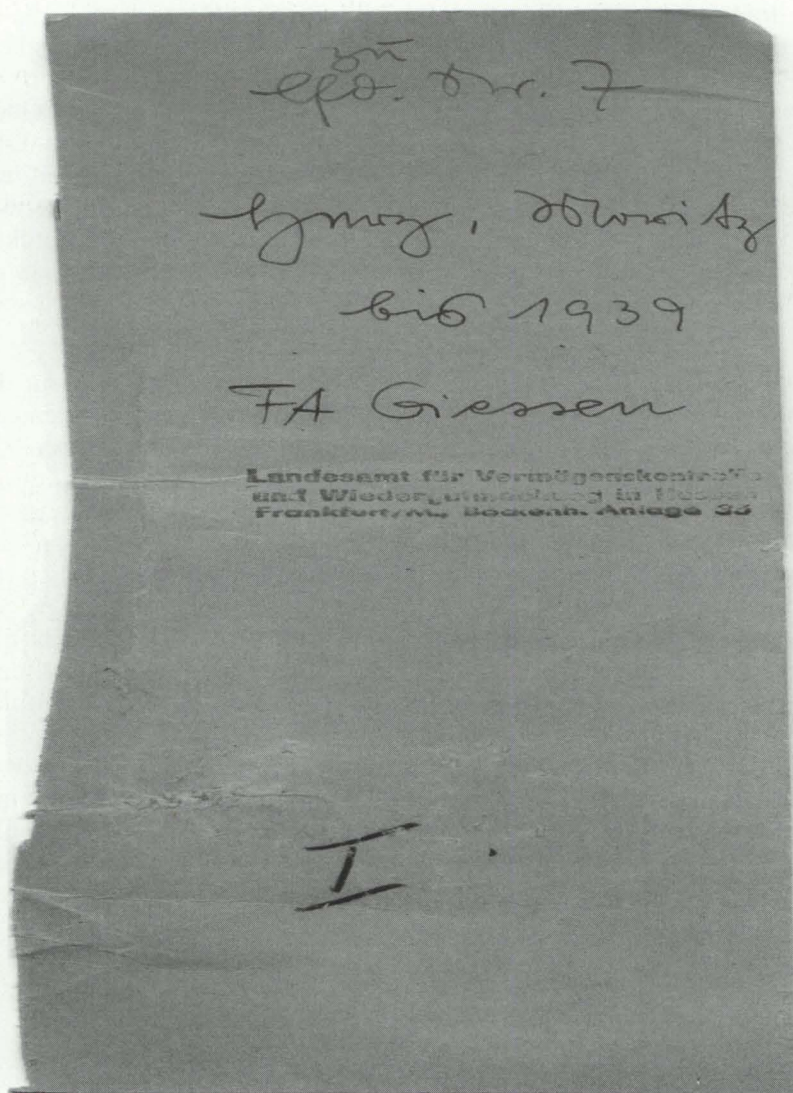 zu
lfd. Nr. 7
Moritz
bis 1939
FA Giessen
Landesamt für Vermögenskontrolle
und Wiedergutmachung in Hessen
Frankfurt/M., Bockenh. Anlage 35
I.